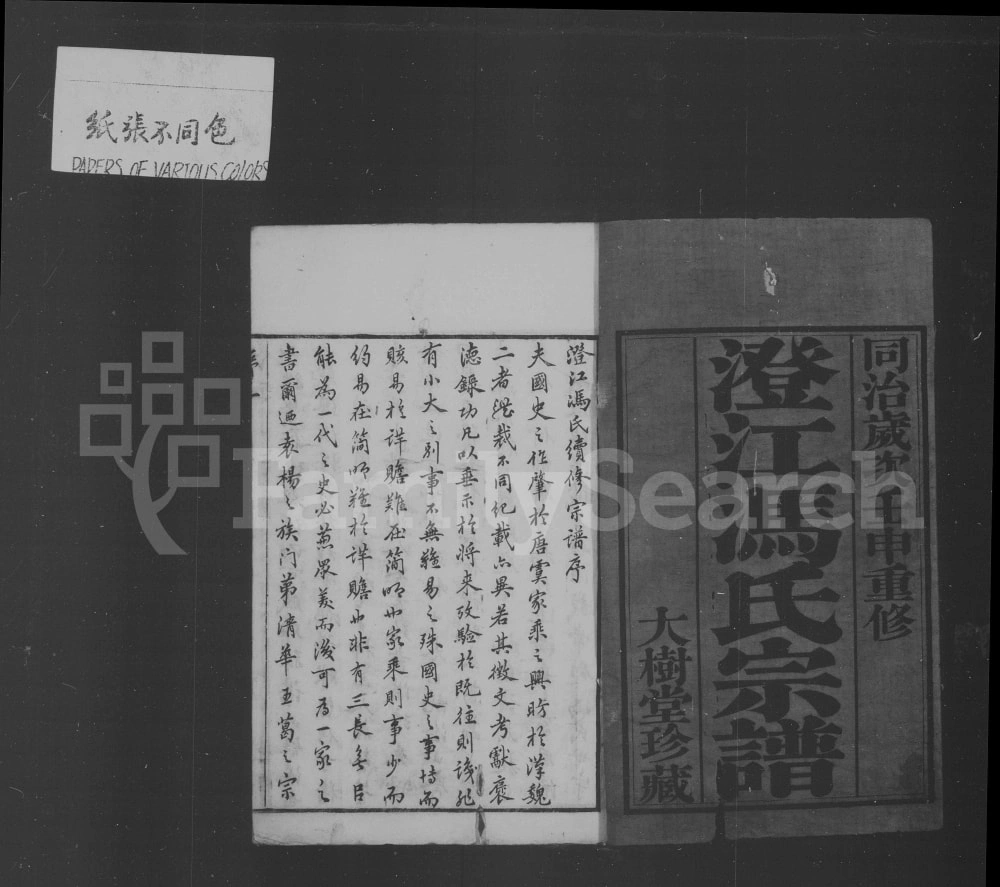 纸張不同色
PAPERS OF VARIOUS COLORS
同治歲次壬申重修
澄江馮氏宗譜
大樹堂珍藏
澄江馮氏續修宗譜序
夫國史之作肇於唐虞家乘之興昉於漢魏
二者體裁不同紀載亦異若其徵文考獻褒
德錄功凡以垂示於將來攷驗於既往則誠非
有小大之別事不無難易之殊國史之事博而
賅易於詳贍難在簡明也家乘則事少而
約易在簡明難於詳贍也非有三長無以
能為一代之史必兼眾美而後可為一家之
書爾迺袁楊之族門第清華王葛之宗
FamilySearch